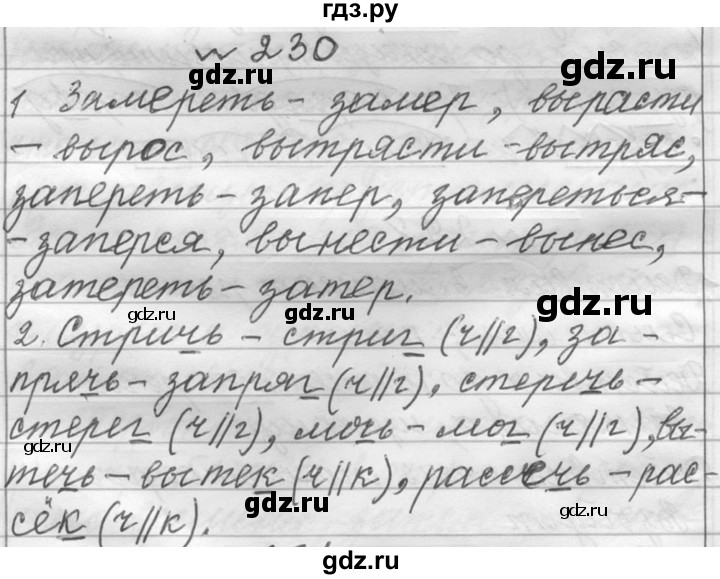 гдз.ру
№ 230
gdz.ru gdz.ru
1 Замереть - замер, вырасти
- вырос, вытрясти - вытряс,
gdz.ru gdz.ru
запереть - запер, запереться -
- заперся, вынести - вынес,
gdz.ru
затереть - затер.
gdz.ru gdz.ru
2. Стричь - стриг (ч//г), за -
прячь - запряг (ч//г), стеречь -
gdz.ru gdz.ru
стерег (ч//г), мочь - мог (ч//г), вы-
gdz.ru
течь - вытек (ч//к), рассечь - рас-
сёк (ч//к).
gdz.ru gdz.ru
gdz.ru